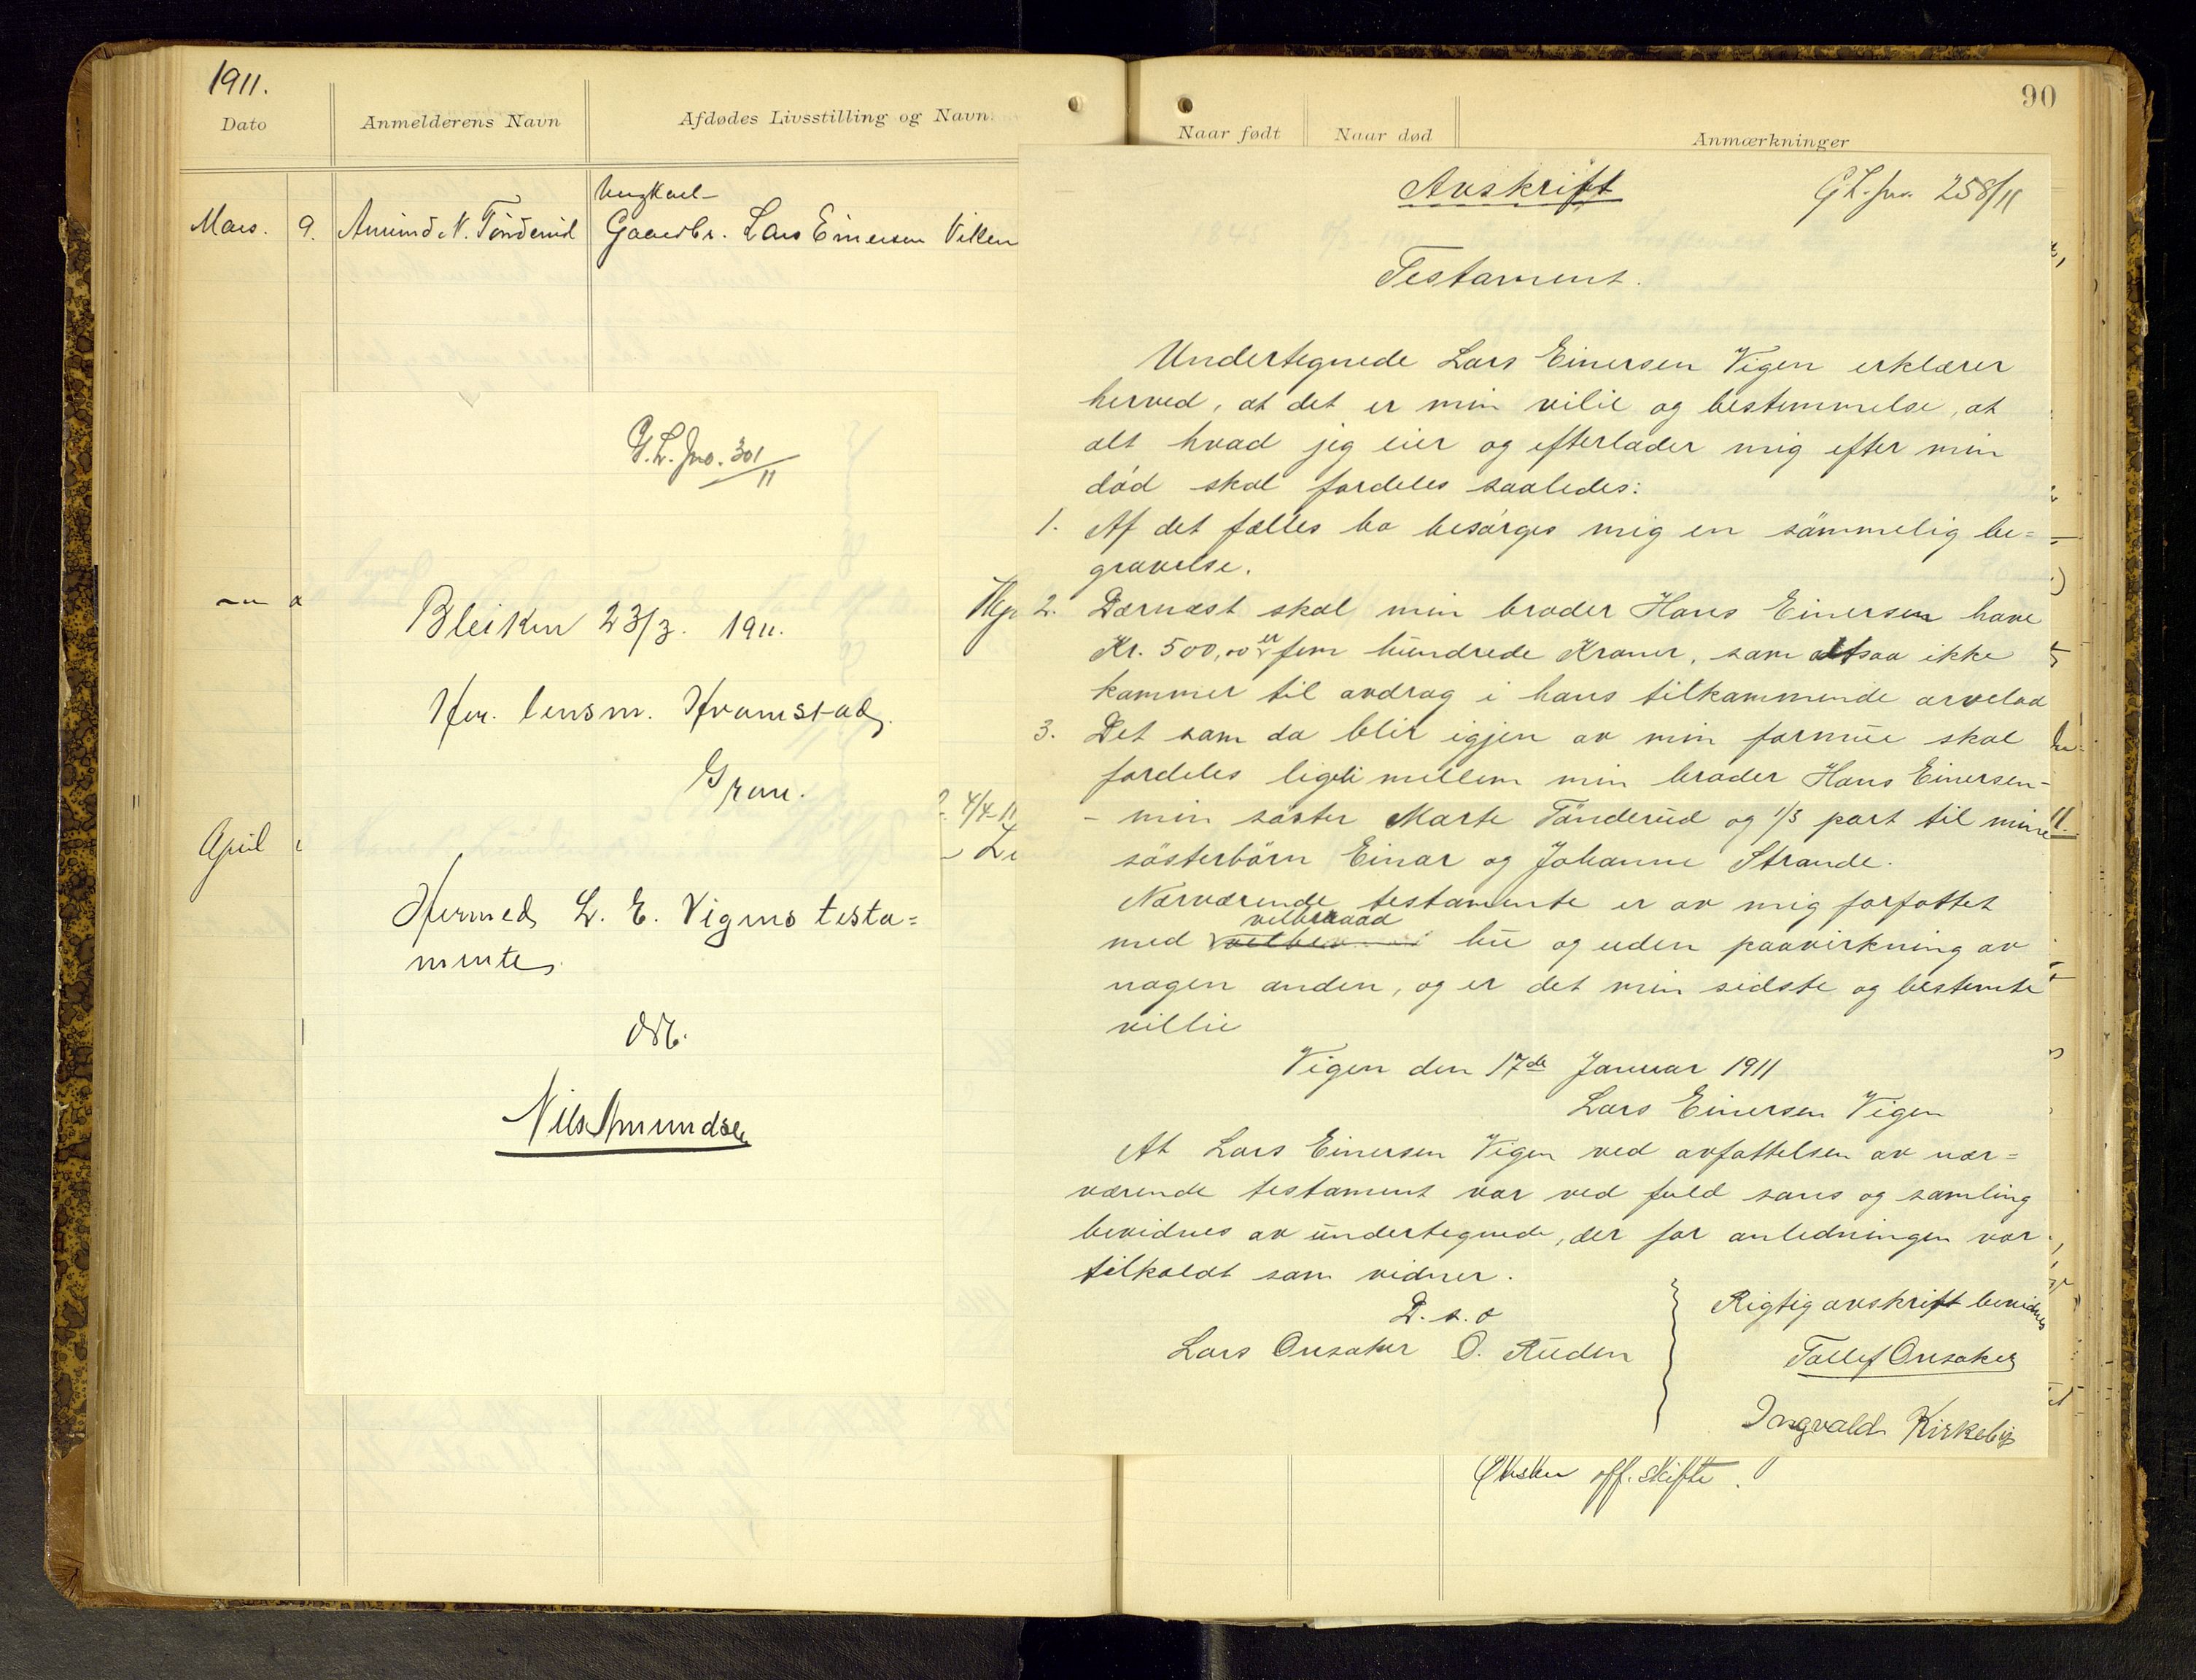 1911.
Dato
Anmelderens Navn
Afdødes Livsstilling og Navn
Ungkarl
Mars. 9. Amund N. Tønderud Gaardbr. Lars Einersen Viken
April
G.L. Jno. 301/11
Bleiken 23/3. 1911.
Hr. lensm. Hvamstad,
Gran.
Hermed L. E. Vigens testa=
mente,
Nils Amundsen
4/4-11
90
Naar født
Naar død
Anmærkninger
Avskrift
G L. jno. 258/11
Testament.
Undertegnede Lars Einersen Vigen erklærer
herved, at det er min vilie og bestemmelse, at
alt hvad jeg eier og efterlader mig efter min
død skal fordeles saaledes:
1. Af det fælles bo besørges mig en sømmelig be=
gravelse.
2. Dærnæst skal min broder Hans Einersen have
Kr. 500,00 er fem hundrede Kroner, som altsaa ikke
kommer til avdrag i hans tilkommende arvelod
3. Det som da blir igjen av min formue skal
fordeles ligeli mellem min broder Hans Einersen-
- min søster Marte Tönderud og 1/3 part til mine
søsterbørn Einar og Johanne Strande.
Nærværende testamente er av mig forfattet
velberaad
med hu og uden paavirkning av
nogen anden, og er det min sidste og bestemte
villie
Vigen den 17de Januar 1911
Lars Einersen Vigen
At Lars Einersen Vigen ved avfattelsen av nær=
værende testament var ved fuld sans og samling
bevidnes av undertegnede, der for anledningen var
tilkaldt som vidner.
D. s. o
Lars Onsaker O. Ruden
Rigtig avskrift bevidnes
Tollef Onsaker
Ingvald Kirkeby
Ønsker off. skifte.